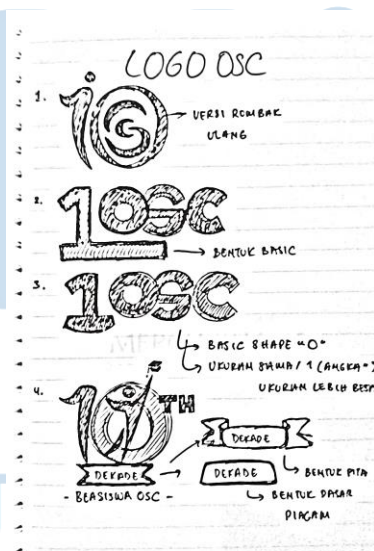 LOGO OSC
1.
10
→ VERSI ROMBAK
ULANG
2.
1OSC
→ BENTUK BASIC
3.
1OSC
BASIC SHAPE "O"
UKURAN SAMA / 1 (ANGKA")
UKURAN LEBIH
4.
10TH
DEKADE
- BEASISWA OSC -
DEKADE
BENTUK PITA
DEKADE
BENTUK DASAR
PIAGAM